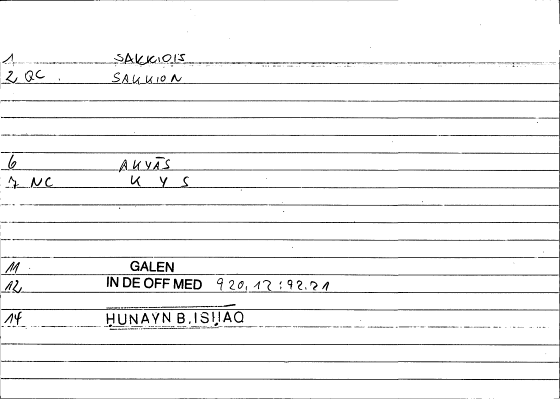 1 SAKKIOIS
2 QC . SAKKION
6 AKYĀS
7 NC K Y S
11 . GALEN
12 IN DE OFF MED 920,12 : 92.21
14 ḤUNAYN B. ISḤAQ